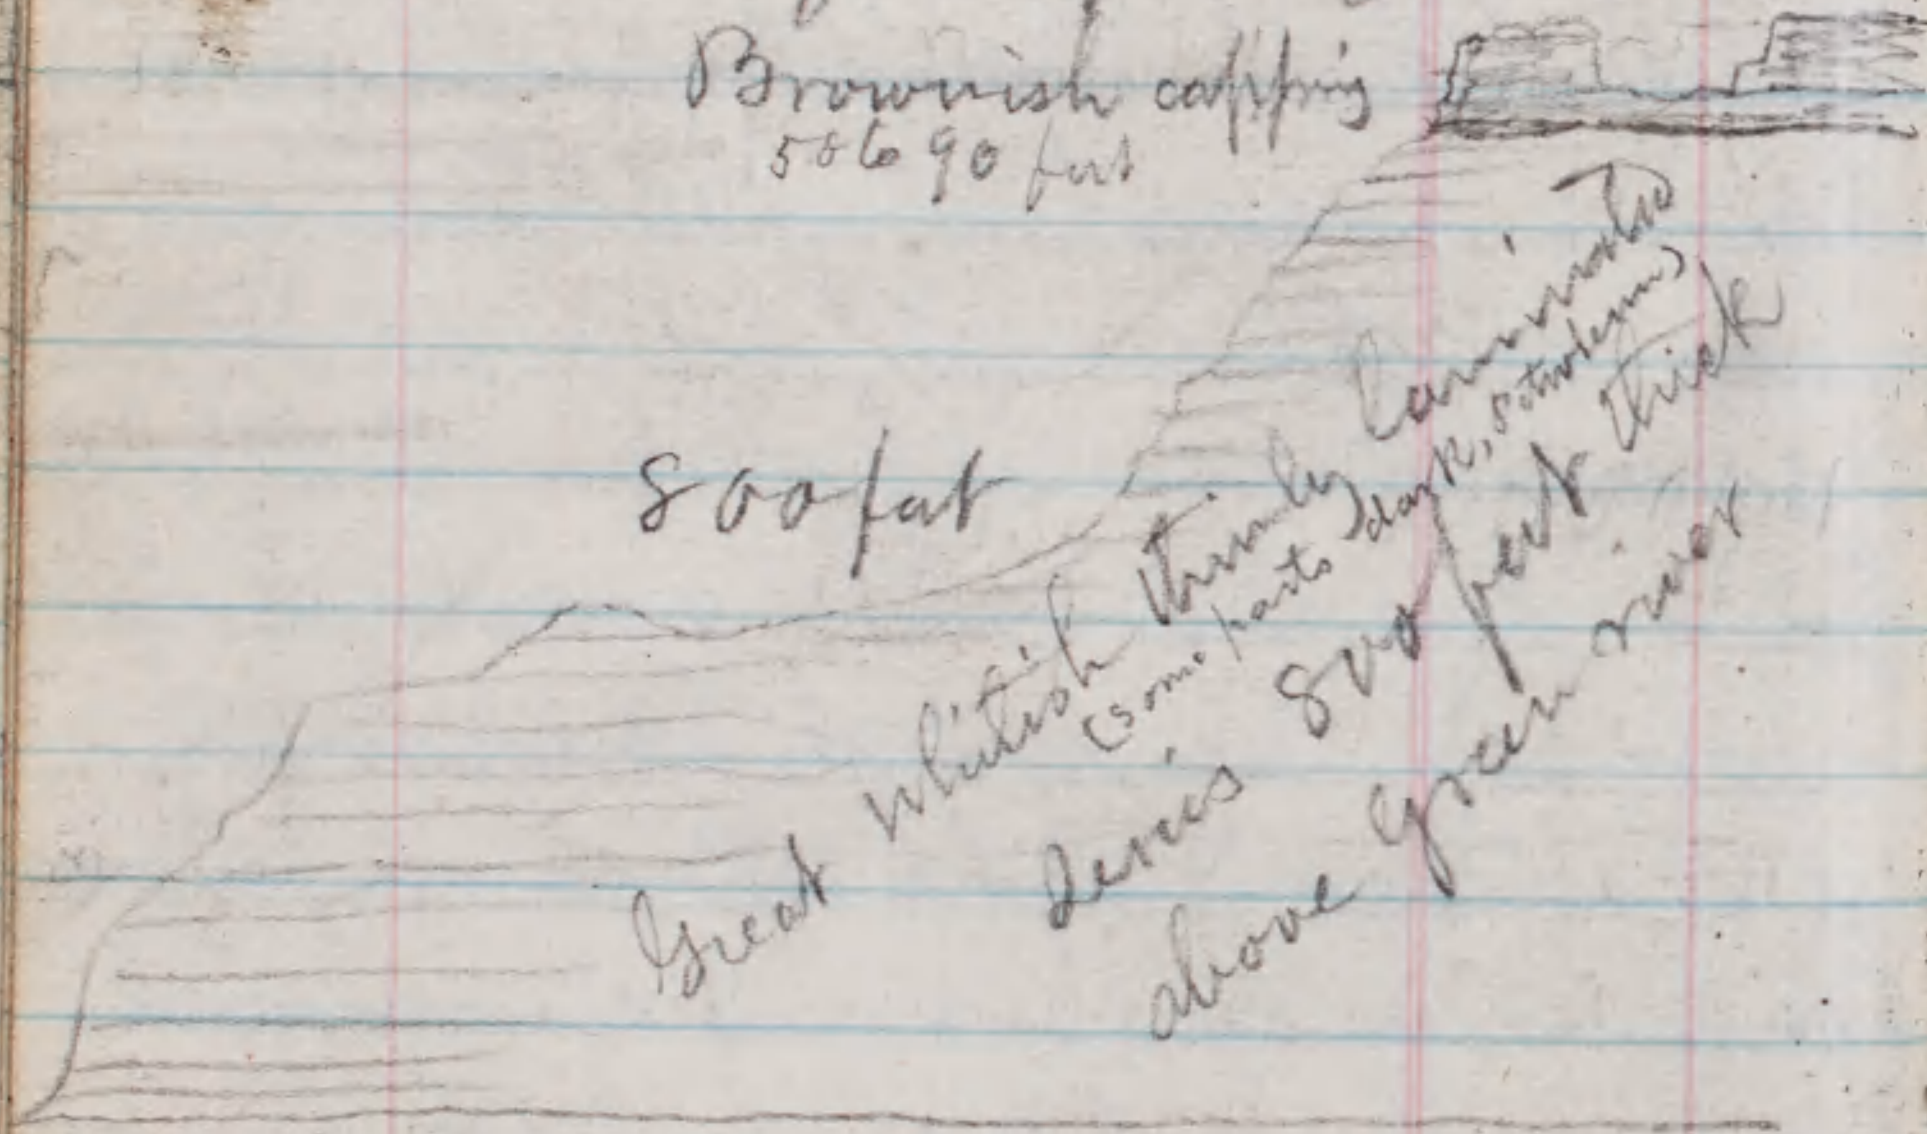 Brownish capping
50 to 90 feet
800 feet
Great whitish thinly laminated
(some parts dark,
Series 800 feet thick
above Green river